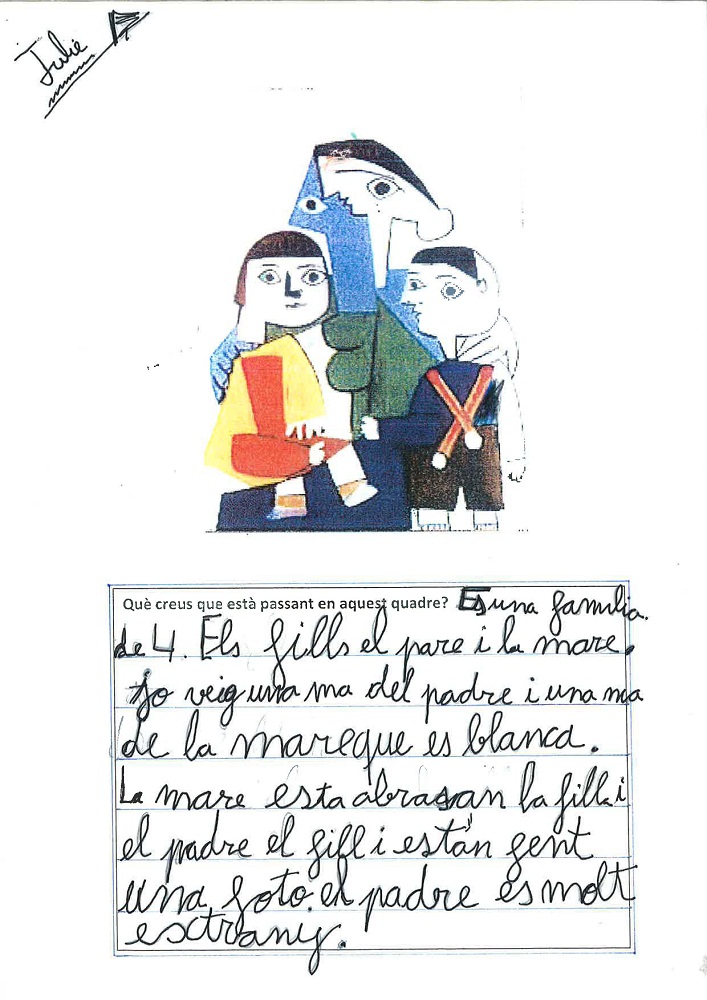 Julie
Què creus que està passant en aquest quadre? Es una familia.
de 4. Els fills el pare i la mare.
jo veig una ma del padre i una ma
de la mare que es blanca.
La mare esta abrasan la filla i
el padre el fill i están gent
una foto. el padre es molt
esctrany.